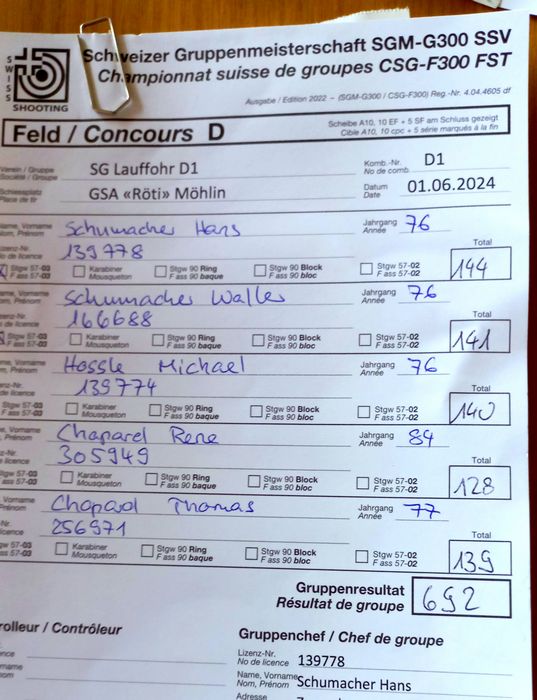 SWISS
SHOOTING
Schweizer Gruppenmeisterschaft SGM-G300 SSV
Championnat suisse de groupes CSG-F300 FST
Ausgabe / Edition 2022 – (SGM-G300 / CSG-F300) Reg.-Nr. 4.04.4605 df
Feld / Concours D
Scheibe A10, 10 EF + 5 SF am Schluss gezeigt
Cible A10, 10 cpc + 5 série marqués à la fin
Verein / Gruppe
Société / Groupe
SG Lauffohr D1
Komb.-Nr.
No de comb.
D1
Schiessplatz
Place de tir
GSA «Röti» Möhlin
Datum
Date
01.06.2024
ame, Vorname
om, Prénom
Schumacher Hans
Jahrgang
Année
76
Lizenz-Nr.
No de licence
139778
Total
144
Stgw 57-03
F ass 57-03
Karabiner
Mousqueton
Stgw 90 Ring
F ass 90 baque
Stgw 90 Block
F ass 90 bloc
Stgw 57-02
F ass 57-02
me, Vorname
om, Prénom
Schumacher Walter
Jahrgang
Année
76
enz-Nr.
de licence
166688
Total
141
Stgw 57-03
F ass 57-03
Karabiner
Mousqueton
Stgw 90 Ring
F ass 90 baque
Stgw 90 Block
F ass 90 bloc
Stgw 57-02
F ass 57-02
e, Vorname
m, Prénom
Hossle Michael
Jahrgang
Année
76
nz-Nr.
de licence
139774
Total
140
Stgw 57-03
F ass 57-03
Karabiner
Mousqueton
Stgw 90 Ring
F ass 90 baque
Stgw 90 Block
F ass 90 bloc
Stgw 57-02
F ass 57-02
e, Vorname
, Prénom
Chapard Rene
Jahrgang
Année
84
z-Nr.
e licence
305949
Total
128
Stgw 57-03
F ass 57-03
Karabiner
Mousqueton
Stgw 90 Ring
F ass 90 baque
Stgw 90 Block
F ass 90 bloc
Stgw 57-02
F ass 57-02
Vorname
Prénom
Chapard Thomas
Jahrgang
Année
77
Nr.
licence
256971
Total
139
gw 57-03
ss 57-03
Karabiner
Mousqueton
Stgw 90 Ring
F ass 90 baque
Stgw 90 Block
F ass 90 bloc
Stgw 57-02
F ass 57-02
Gruppenresultat
Résultat de groupe
692
rolleur / Contrôleur
Gruppenchef / Chef de groupe
nce
Lizenz-Nr.
No de licence
139778
name
nom
Name, Vorname
Nom, Prénom
Schumacher Hans
Adresse